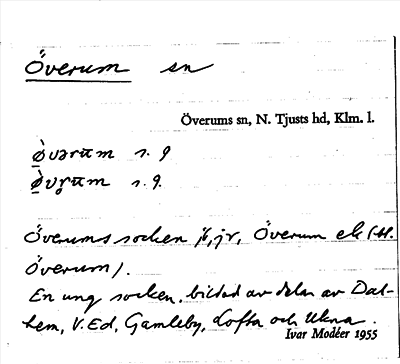 Överum sn
Överums sn, N. Tjusts hd, Klm. l.
ø̀vərūm s. 9
ø̀vr̥ūm s. 9.
Överums socken
jr, Överum
Överum).
En ung socken, bildad av delar av Dal-
hem, V. Ed, Gamleby, Lofta och Ukna.
Ivar Modéer 1955